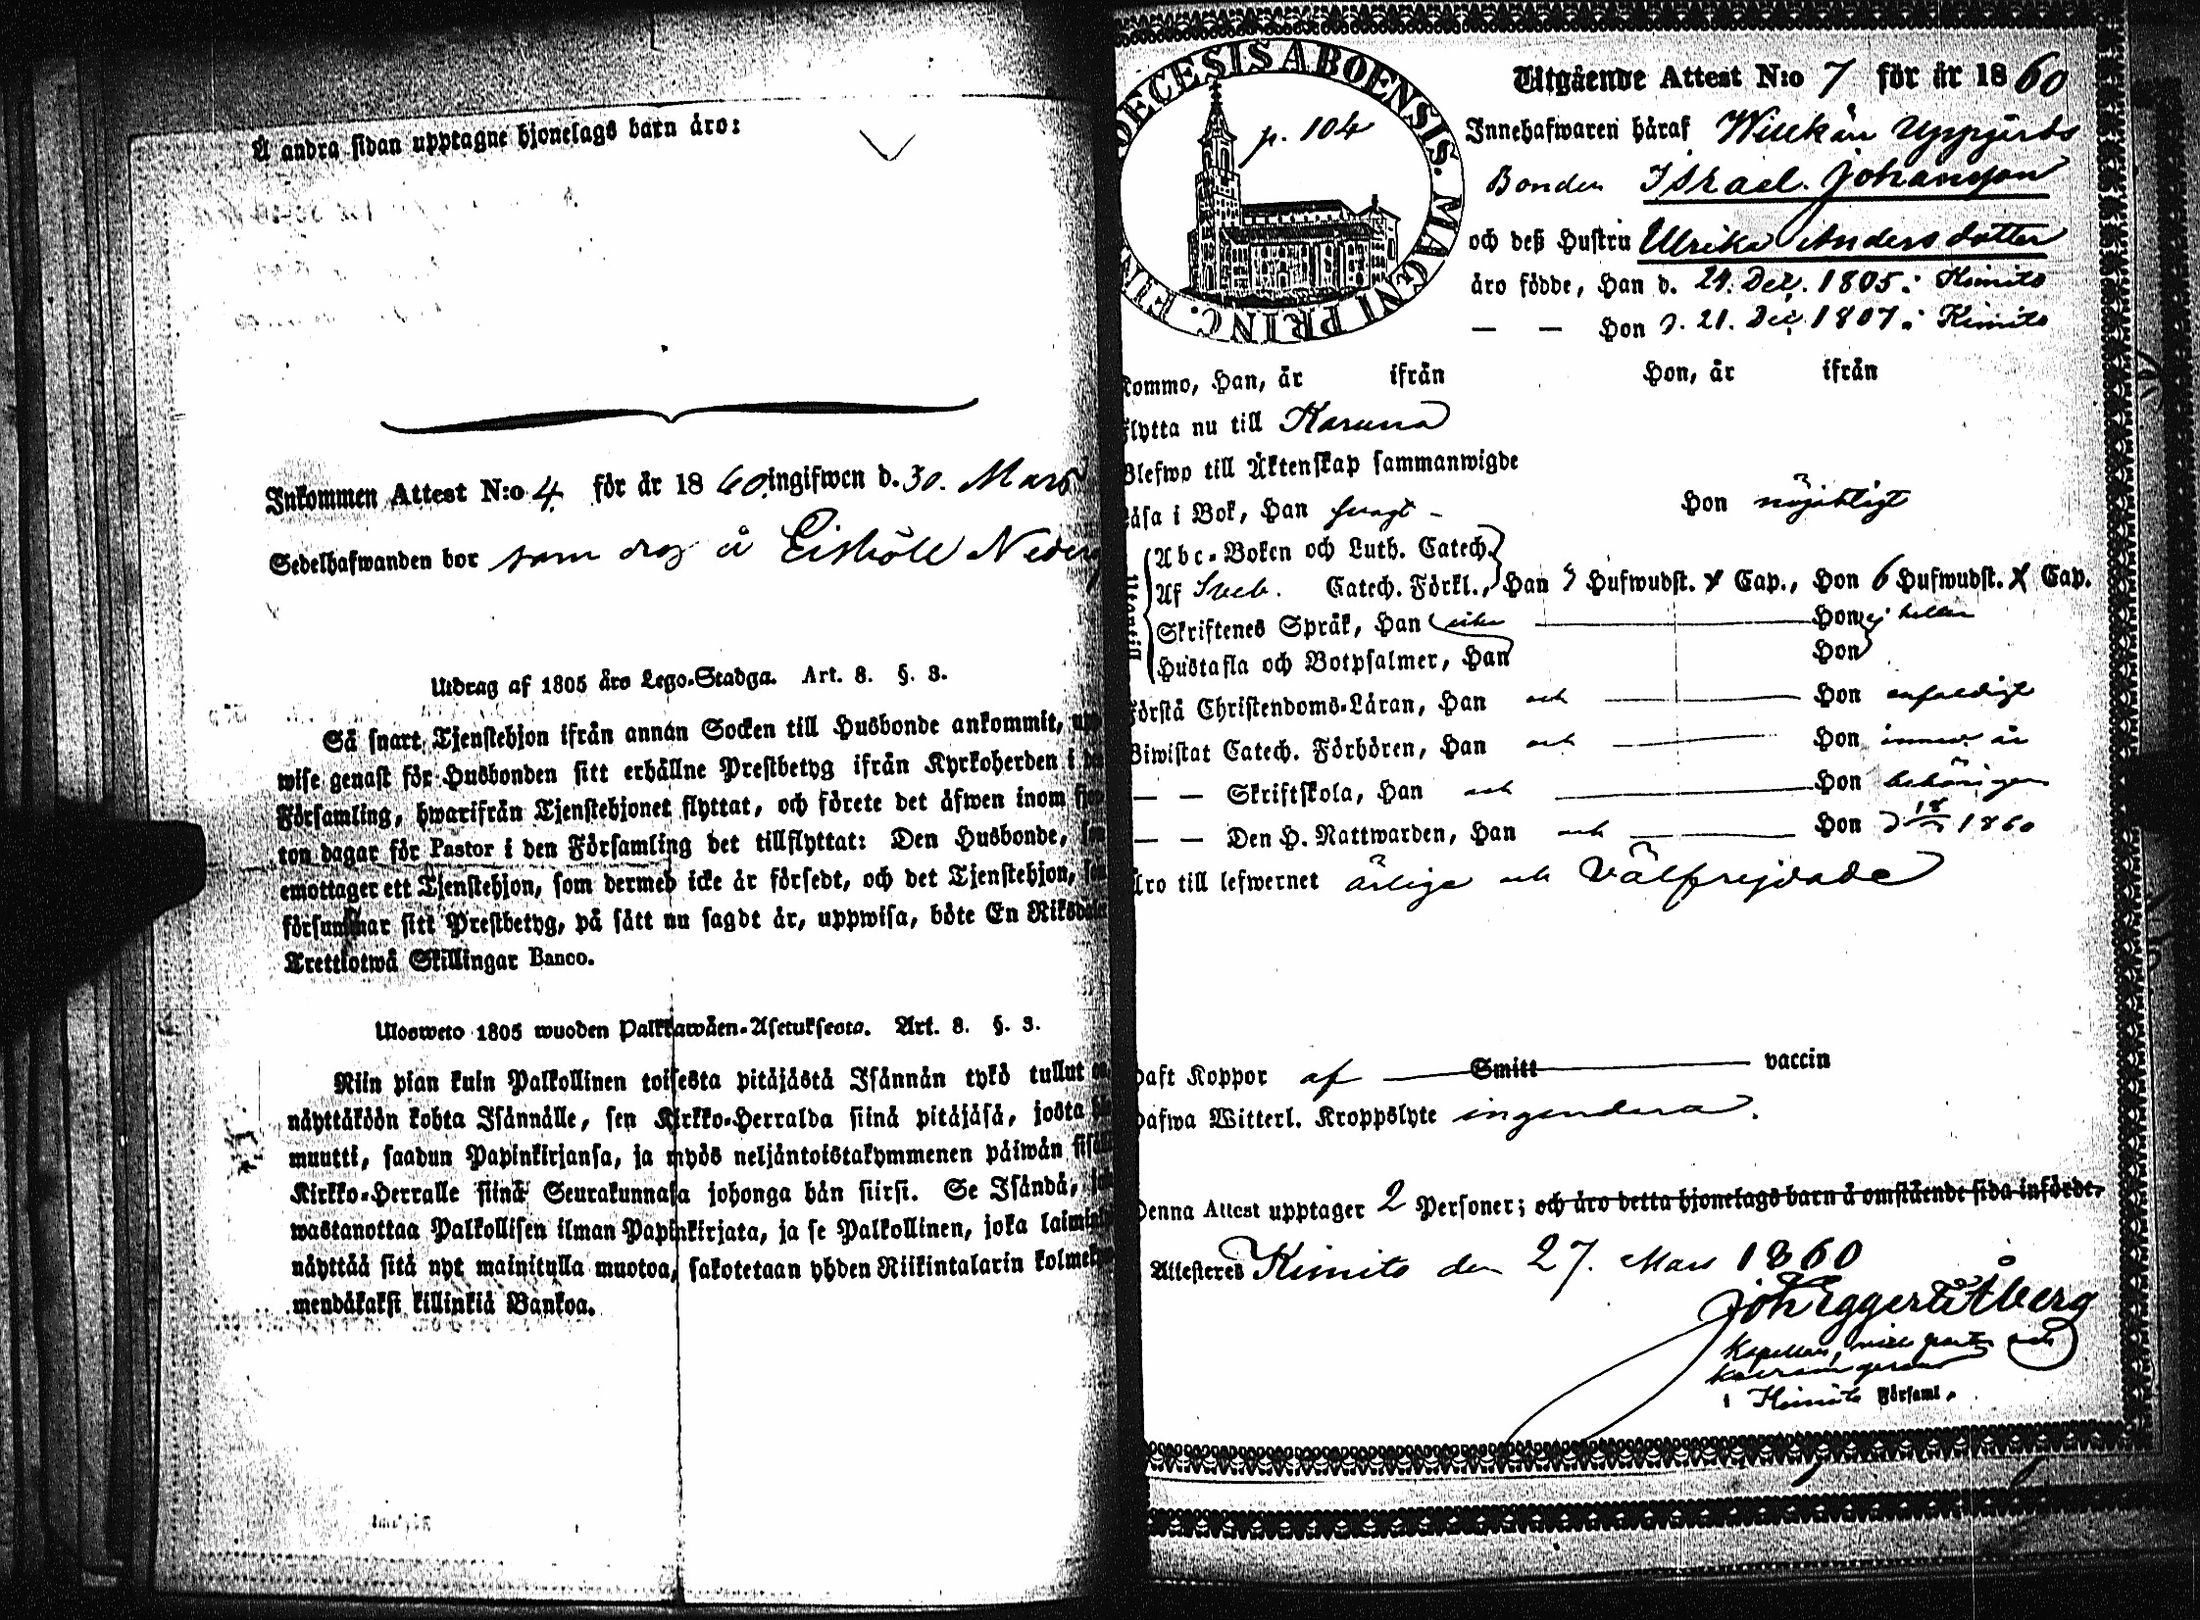 Å andra sidan upptagne hjonelags barn äro:
Inkommen Attest N:o 4 för år 1860 ingifwen d. 30. Mars
Sedelhafwanden bor som drg å Eisböle Neder
Utdrag af 1805 års Lego-Stadga. Art. 8. §. 3.
Så snart Tjenstehjon ifrån annan Socken till Husbonde ankommit,
wise genast för Husbonden sitt erhållne Prestbetyg ifrån Kyrkoherden i
Församling, hwarifrån Tjenstehjonet flyttat, och förete det äfwen inom
ton dagar för Pastor i den Församling det tillflyttat: Den Husbonde,
emottager ett Tjenstehjon, som dermed icke är försedt, och det Tjenstehjon,
försummar sitt Prestbetyg, på sätt nu sagdt är, uppwisa, böte En Riksdaler
Trettiotwå Skillingar Banco.
Ulosweto 1805 wuoden Palkkawäen-Asetuksesta. Art. 8. §. 3.
Niin pian kuin Palkollinen toisesta pitäjästä Isännän tykö tullut on,
näyttäköön kohta Isännälle, sen Kirkko-Herralda siinä pitäjäsä, josta
muutti, saadun Papinkirjansa, ja myös neljäntoistakymmenen päiwän sisä
Kirkko-Herralle siinä Seurakunnasa johonga hän siirsi. Se Isändä,
wastanottaa Palkollisen ilman Papinkirjata, ja se Palkollinen, joka
näyttää sitä nyt mainitulla muotoa, sakotetaan yhden Riikintalarin
mendäkaksi killinkiä Bankoa.
DIOECESIS ABOENSIS. MAGNI PRINC. FIN
p. 104
Utgående Attest N:o 7 för år 1860
Innehafwaren häraf Willkän Uppgårds
Bonden Israel Johansson
och deß Hustru Ulrika Andersdotter
äro födde, Han d. 24. Dec. 1805 i Kimito
— — Hon d. 21. Dec. 1807 i Kimito
Kommo, Han, år ifrån Hon, år ifrån
Flytta nu till Karuna
Blefwo till Äktenskap sammanwigde
Läsa i Bok, Han swagt - Hon nöjaktigt
Utantill
Abc-Boken och Luth. Catech.
Af Sveb. Catech. Förkl., Han 5 Hufwudst. x Cap., Hon 6 Hufwudst. x Cap.
Skriftenes Språk, Han icke Hon ej heller
Hustafla och Botpsalmer, Han Hon
Förstå Christendoms-Läran, Han och Hon enfaldigt
Biwistat Catech. Förhören, Han och Hon innew. år
— — Skriftskola, Han och Hon behörigen
— — Den H. Nattwarden, Han och Hon d 18/3 1860
Äro till lefwernet ärliga och välfrejdade
Haft Koppor af Smitt vaccin
Hafwa Witterl. Kroppslyte ingendera.
Denna Attest upptager 2 Personer; och äro detta hjonelags barn å omstående sida införde.
Attesteres Kimito den 27. Mars 1860
Joh Eggert Åberg
Kapellan, vice past. och
i Kimito Församl.